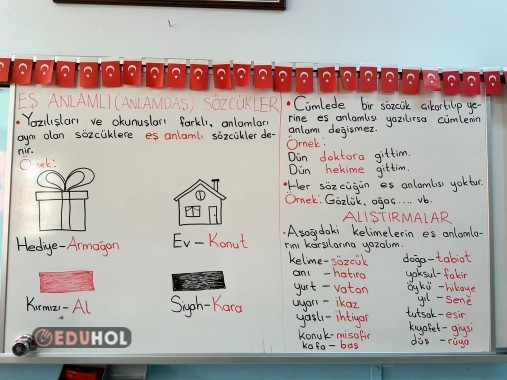 EŞ ANLAMLI (ANLAMDAŞ) SÖZCÜKLER
• Yazılışları ve okunuşları farklı, anlamları
aynı olan sözcüklere eş anlamlı sözcükler de-
nir.
Örnek:
Hediye-Armağan
Ev-Konut
Kırmızı-Al
Siyah-Kara
EDUHOL
• Cümlede bir sözcük çıkartılıp ye-
rine eş anlamlısı yazılırsa cümlenin
anlamı değişmez.
Örnek:
Dün doktora gittim.
Dün hekime gittim.
• Her sözcüğün eş anlamlısı yoktur.
Örnek: Gözlük, ağaç.... vb.
ALIŞTIRMALAR
• Aşağıdaki kelimelerin eş anlamla-
rını karşılarına yazalım.
kelime-sözcük
anı-hatıra
yurt-vatan
uyarı-ikaz
yaşlı-ihtiyar
konuk-misafir
kafa-baş
doğa-tabiat
yoksul-fakir
öykü-hikaye
yıl-sene
tutsak-esir
kıyafet-giysi
düş-rüya